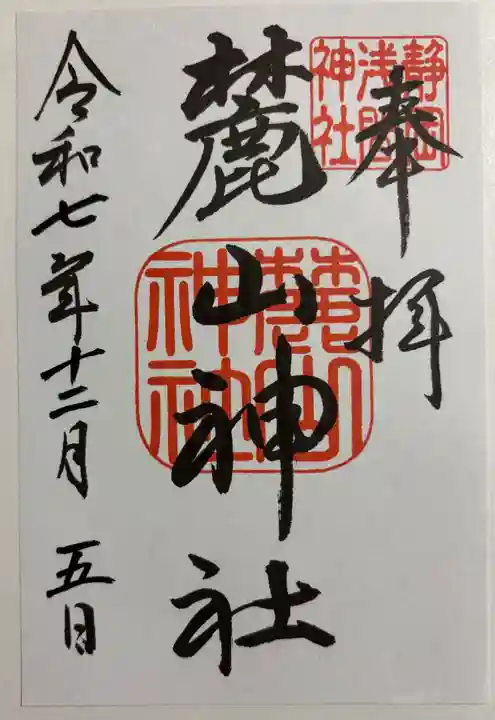 奉拝
静岡
浅間
神社
麓山神社
令和七年十二月五日